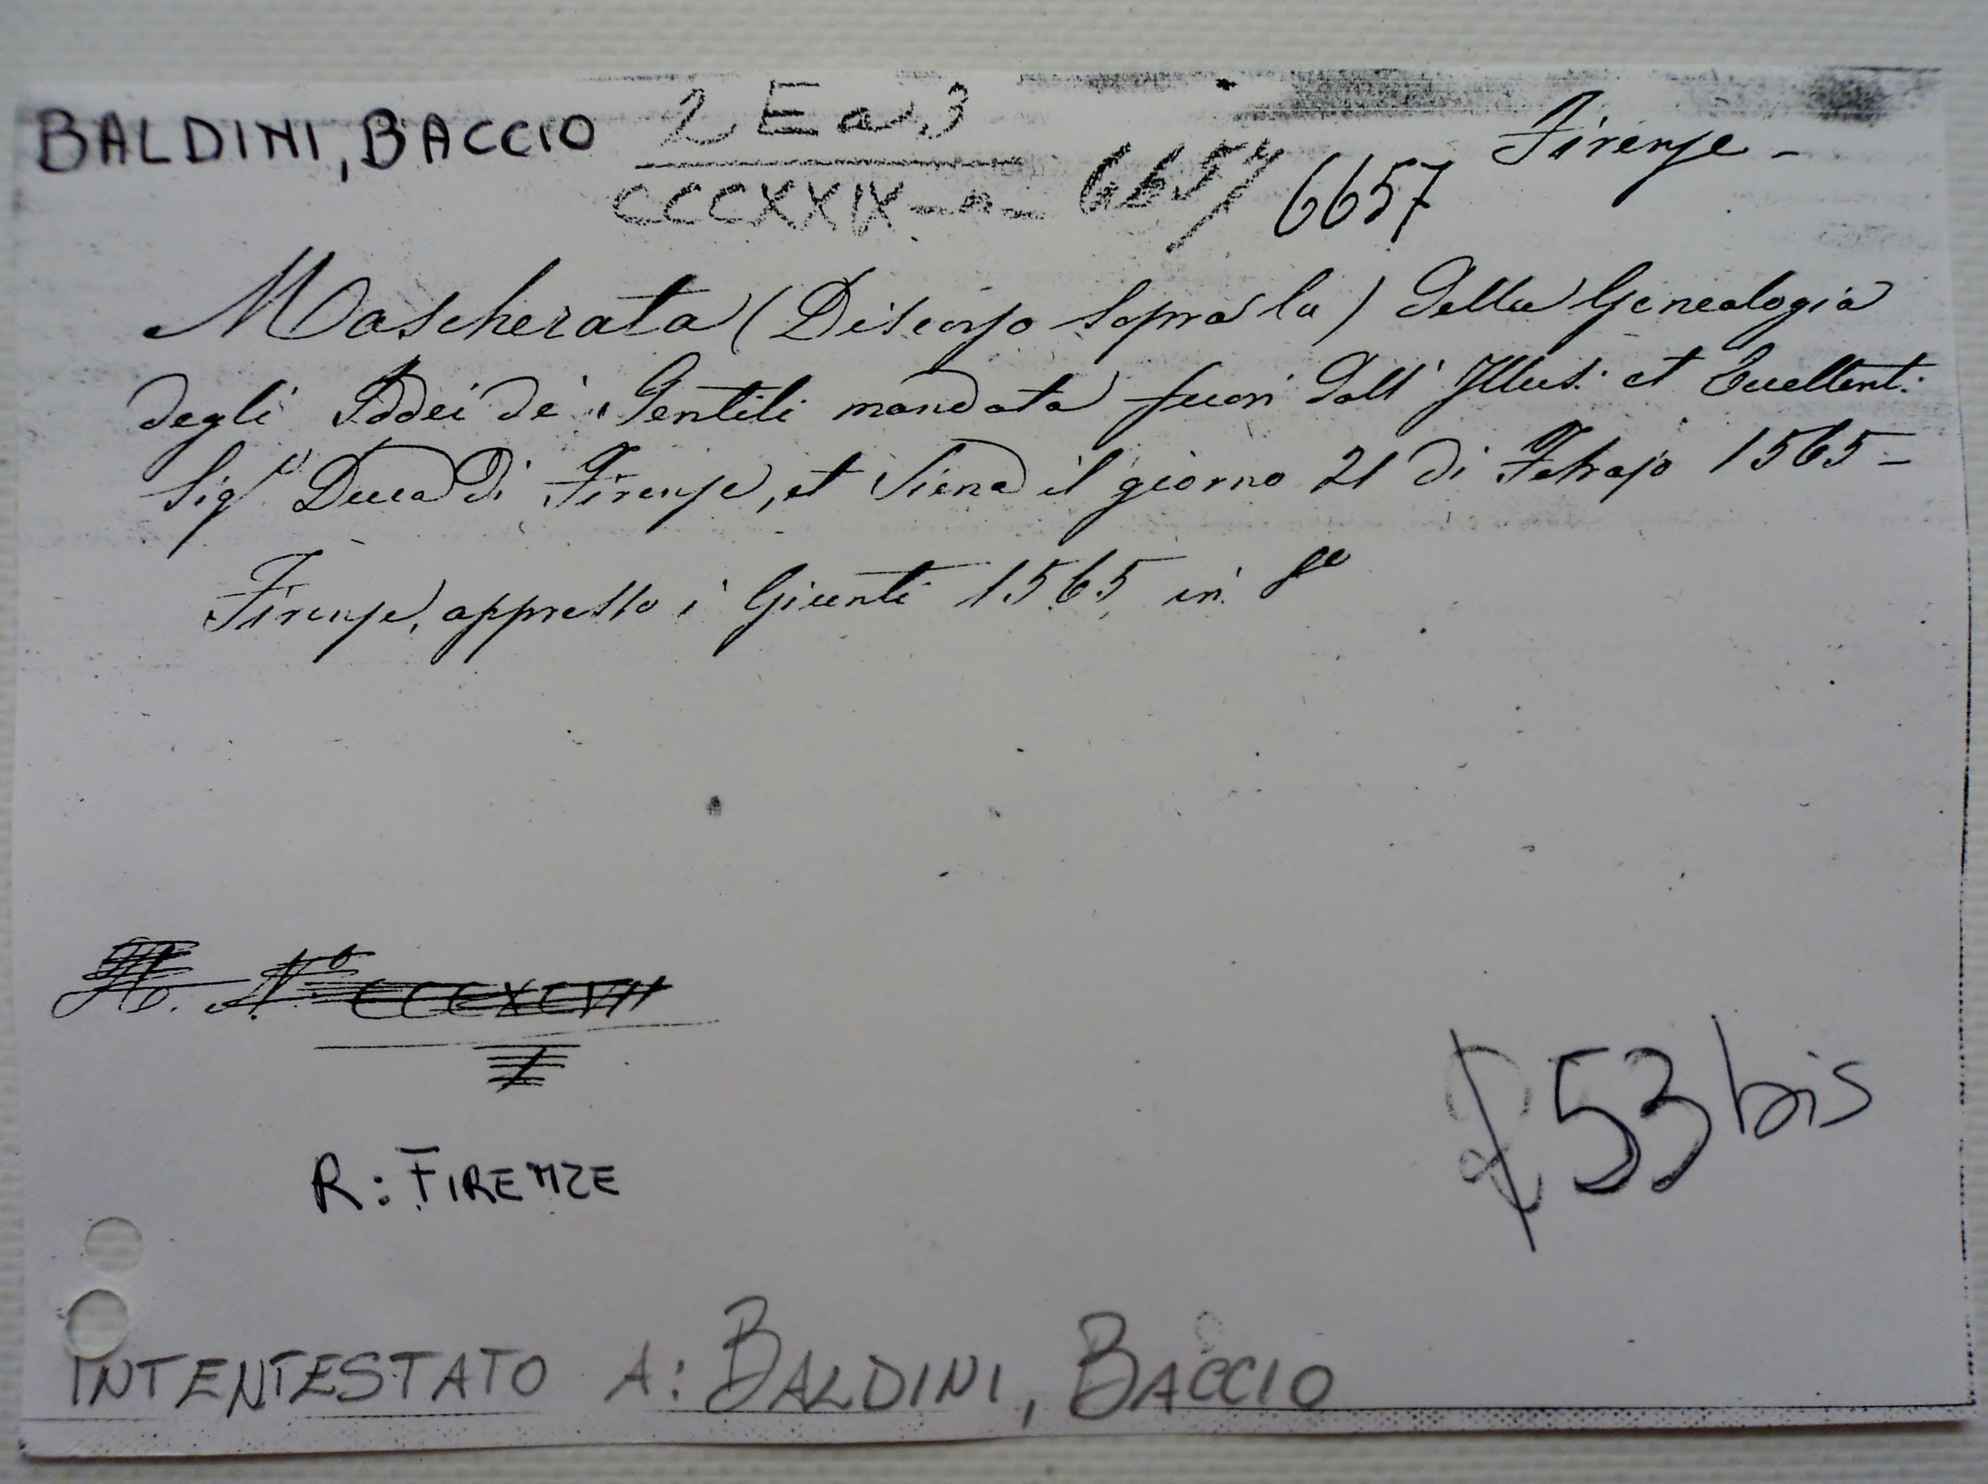 BALDINI, BACCIO 2 E a 3 Firenze -
CCCXXIX - n - 6657 6657
Mascherata (Discorso sopra la) della Genealogia
degli Iddei de' Gentili mandata fuori dall' Illus: et Eccellent:
Sigr Duca di Firenze, et Siena il giorno 21 di Febrajo 1565 -
Firenze, appresso i Giunti 1565 in 8o
No CCCXCVII
R: FIRENZE
53 bis
INTENTESTATO A: BALDINI, BACCIO